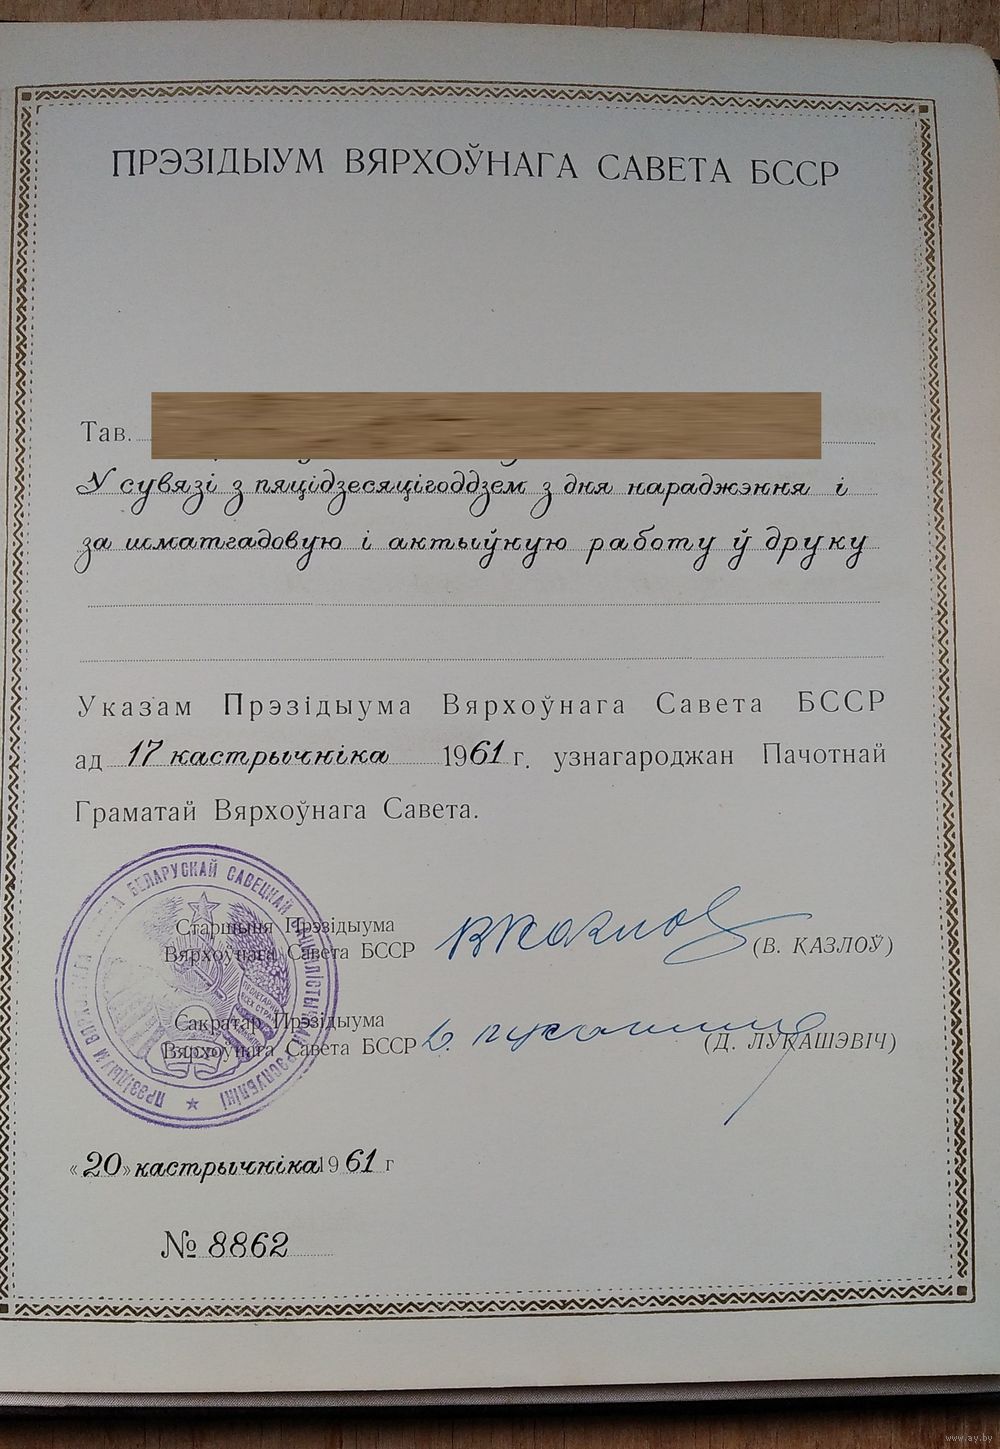 ПРЭЗІДЫУМ ВЯРХОЎНАГА САВЕТА БССР
Тав.
У сувязі з пяцідзесяцігоддзем з дня нараджэння і
за шматгадовую і актыўную работу ў друку
Указам Прэзідыума Вярхоўнага Савета БССР
ад 17 кастрычніка 1961 г. узнагароджан Пачотнай
Граматай Вярхоўнага Савета.
Старшыня Прэзідыума
Вярхоўнага Савета БССР
(В. КАЗЛОЎ)
Сакратар Прэзідыума
Вярхоўнага Савета БССР
(Д. ЛУКАШЭВІЧ)
БЕЛАРУСКАЙ САВЕЦКАЙ РЭСПУБЛІКІ ★ ПРЭЗІДЫУМ
«20» кастрычніка 1961 г
№ 8862
www.ay.by